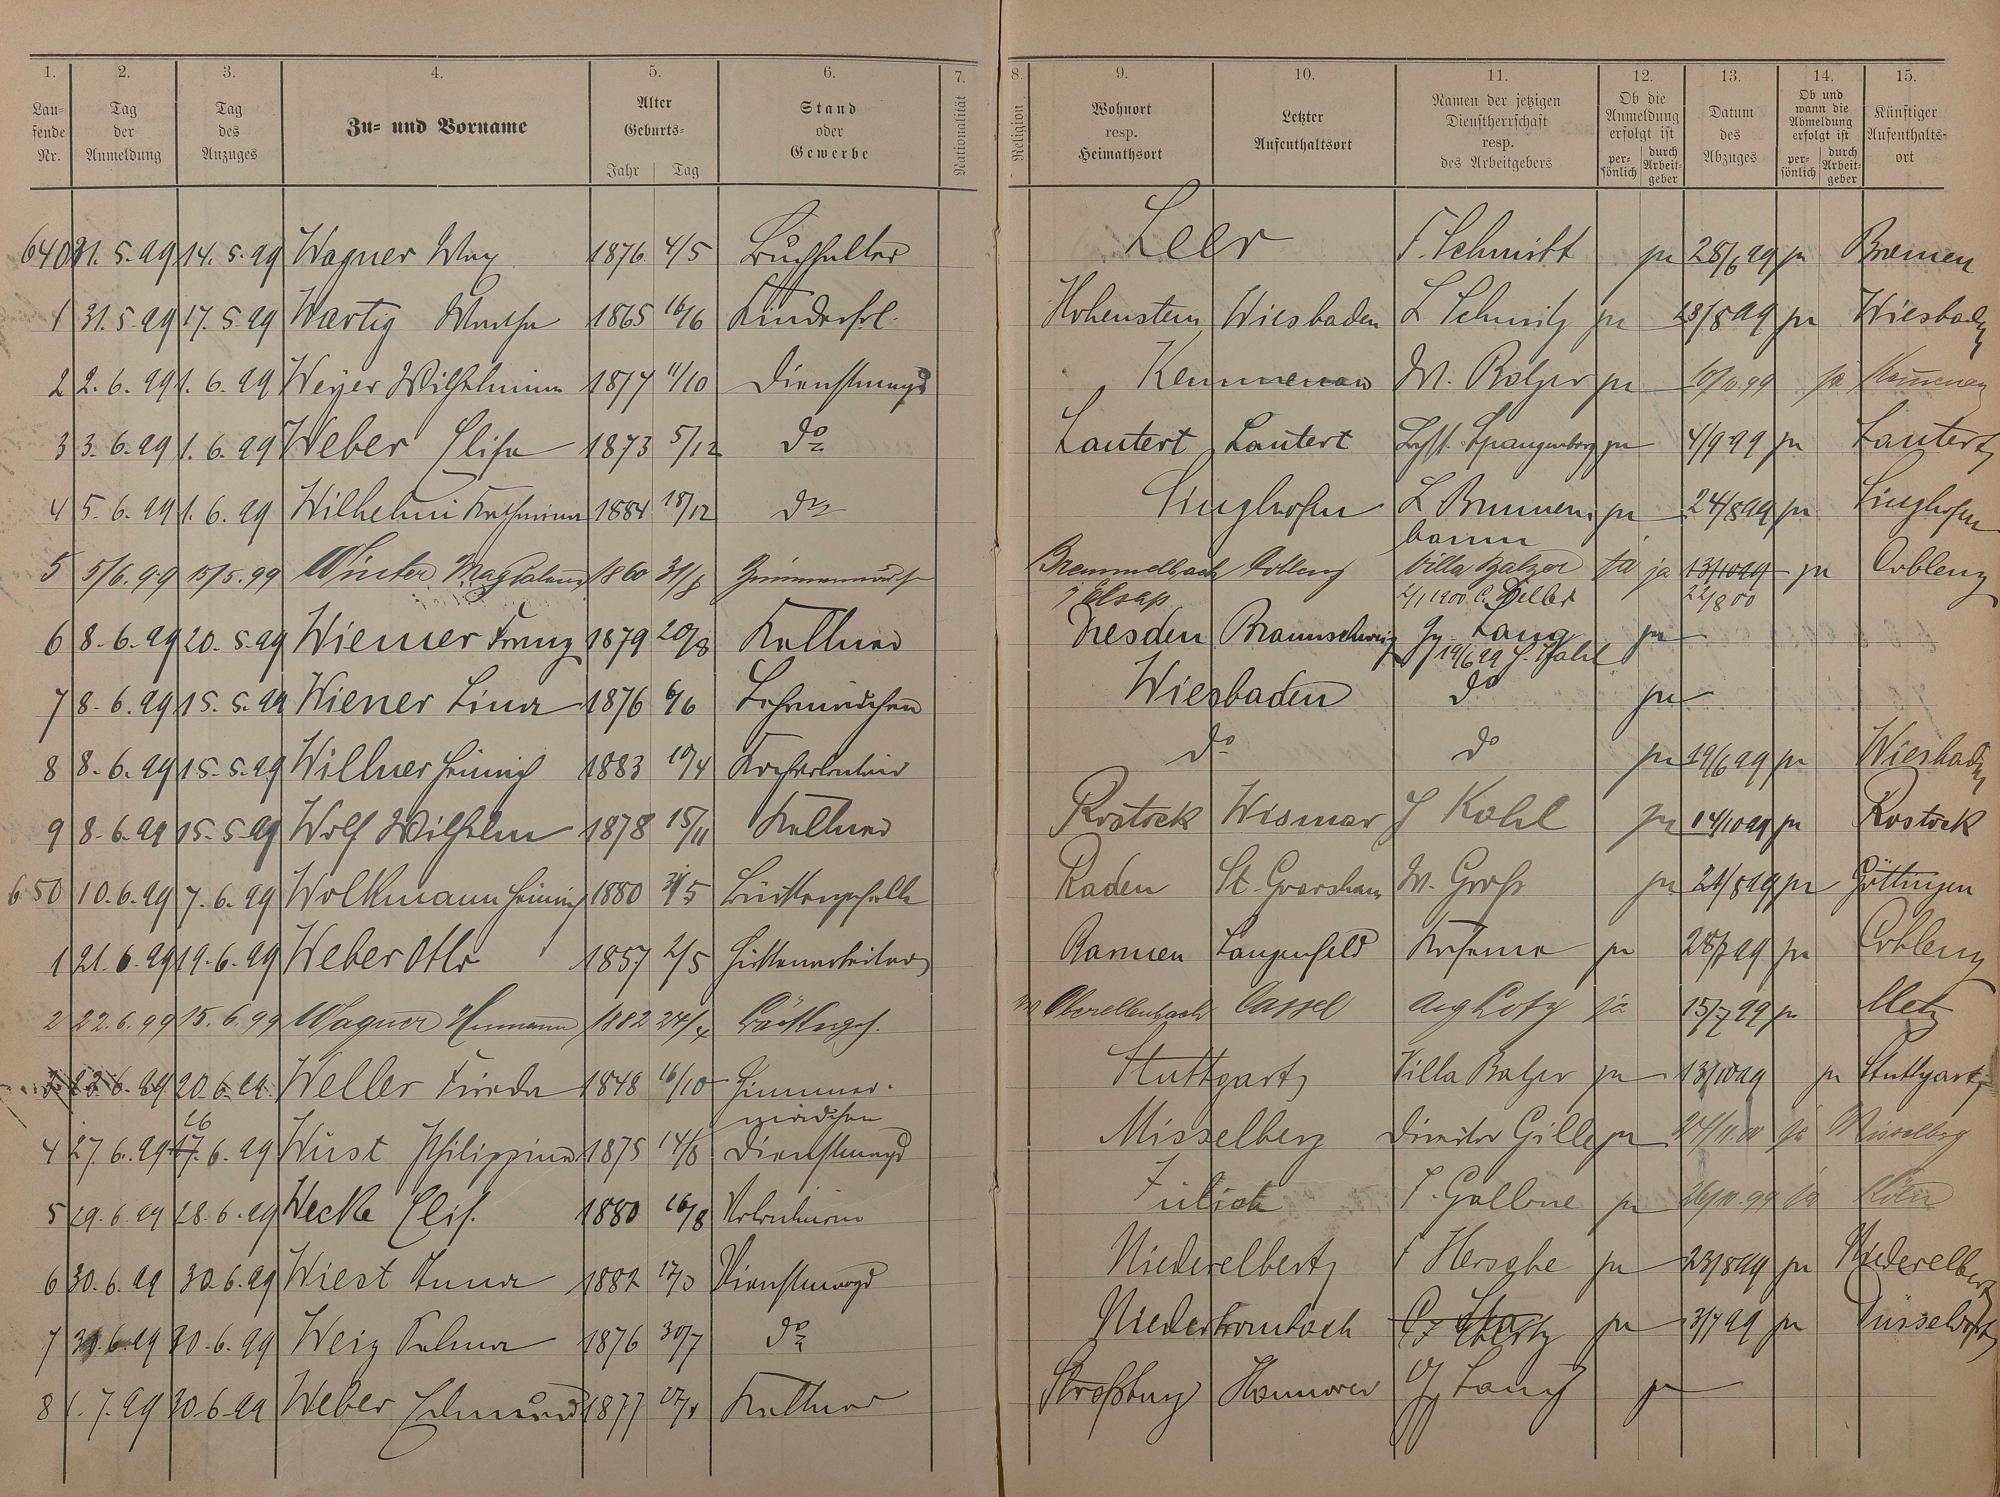 1. 2. 3. 4. 5. 6. 7. 8. 9. 10. 11. 12. 13. 14. 15.
Lau-
fende
Nr.
Tag
der
Anmeldung
Tag
des
Anzuges
Zu- und Vorname
Alter
Geburts-
Jahr Tag
Stand
oder
Gewerbe
Nationalität
Religion
Wohnort
resp.
Heimathsort
Letzter
Aufenthaltsort
Namen der jetzigen
Dienstherrschaft
resp.
des Arbeitgebers
Ob die
Anmeldung
erfolgt ist
per-
sönlich
durch
Arbeit-
geber
Datum
des
Abzuges
Ob und
wann die
Abmeldung
erfolgt ist
per-
sönlich
durch
Arbeit-
geber
Künftiger
Aufenthalts-
ort
640 31. 5. 99 14. 5. 99 Wagner Max 1876 4/5 Buchhalter Leer F. Schmitt ja 28/6 99 ja Bremen
1 31. 5. 99 17. 5. 99 Wartig Martha 1865 16/6 Kinderfrl. Hohenstein Wiesbaden L Schmitz ja 23/8 99 ja Wiesbaden
2 2. 6. 99 1. 6. 99 Weyer Wilhelmine 1877 11/10 Dienstmagd Kemmenau M. Balzer ja 10/11 99 ja Kemmenau
3 3. 6. 99 1. 6. 99 Weber Elise 1873 5/12 do Lautert Lautert Spangenberg ja 4/9 99 ja Lautert
4 5. 6. 99 1. 6. 99 Wilhelmi Katharina 1884 18/12 do Singhofen L Brunnen-
bann ja 24/8 99 ja Singhofen
5 5/6. 99 15/5. 99 Winter Magdalena 1860 31/8 Bremmelbach Coblenz Villa Balzer ja ja 13/10 99 ja Coblenz
Elsaß 2/1 1900 C. Heller 22/8 00
6 8. 6. 99 20. 5. 99 Wiemer Franz 1879 20/8 Kellner Dresden Braunschweig Gg. Lang ja
19/6 99 J. Kahl
7 8. 6. 99 15. 5. 99 Wiener Lina 1876 6/6 Wiesbaden do ja
8 8. 6. 99 15. 5. 99 Willner Heinrich 1883 10/4 do do ja 19/6 99 ja Wiesbaden
9 8. 6. 99 15. 5. 99 Wolf Wilhelm 1878 15/11 Kellner Rostock Wismar J Kahl ja 14/10 99 ja Rostock
650 10. 6. 99 7. 6. 99 Wolkmann Heinrich 1880 31/5 Raden St. Goarshaus W. Groß ja 21/8 99 ja Göttingen
1 21. 6. 99 19. 6. 99 Weber Otto 1857 2/5 Hüttenarbeiter Barmen Langenfeld ja 28/7 99 ja Coblenz
2 22. 6. 99 15. 6. 99 Wagner Hermann 1882 Oberellenbach Cassel Aug Lotz ja 15/7 99 ja Metz
3 22. 6. 99 20. 6. 99 Weller Frieda 1878 16/10 Zimmer-
mädchen Stuttgart Villa Balzer ja 13/10 99 ja Stuttgart
26
4 27. 6. 99 17. 6. 99 Wüst Philippine 1875 14/8 Dienstmagd Misselberg Direktor Gille ja 24/11. 00 ja Misselberg
5 29. 6. 99 28. 6. 99 Wecke Elis. 1880 16/8 Jülich ja 26/10. 99 ja Köln
6 30. 6. 99 30. 6. 99 Wiest Anna 1882 17/3 Dienstmagd Niederelbert ja 23/8 99 ja Niederelbert
7 30. 6. 99 30. 6. 99 Weiz Selma 1876 30/7 do ja 3/7 99 ja Düsseldorf
8 1. 7. 99 30. 6. 99 Weber Edmund 1877 Kellner Straßburg Hannover Gg Lang ja